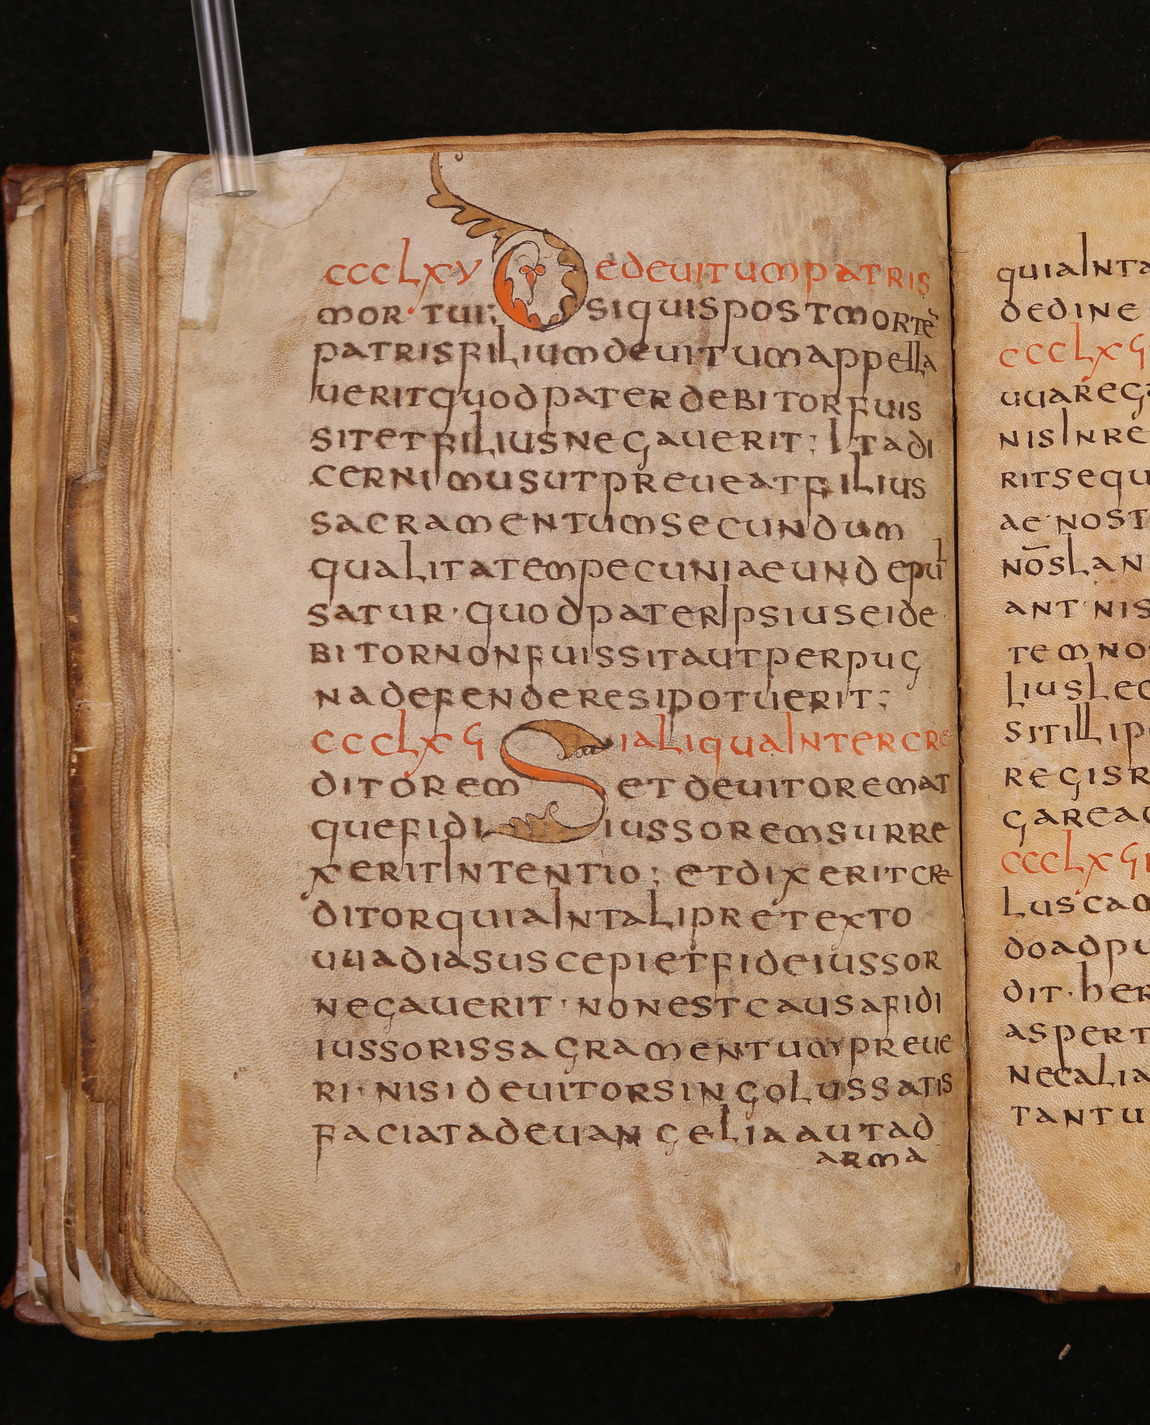 ccclxv De deuitum patris
mortui; si quis post mortē
patris filium deuitum appella
uerit quod pater debitor fuis
sit et filius negauerit; Ita di
cernimus ut preueat filius
sacramentum secundum
qualitatem pecuniae unde pul
satur · quod pater ipsius ei de
bitor non fuissit aut per pug
na defendere si potuerit;
ccclxϛ Si aliqua inter cre
ditorem et deuitorem at
que fidiiussorem surre
xerit intentio; et dixerit cre
ditor quia in tali pretexto
uuadia suscepi et fideiussor
negauerit · non est causa fidi
iussoris sagramentum preue
ri · nisi deuitor singolus satis
faciat ad euangelia aut ad
arma
quia inta
dedine
ccclxϛ
uuarega
nis in re
rit sequ
ae nost
nōs lan
ant nis
tem no
lius leg
sit illi p
regis r
gareau
ccclxϛi
lus cam
do ad pu
dit · her
as pert
nec alia
tantu